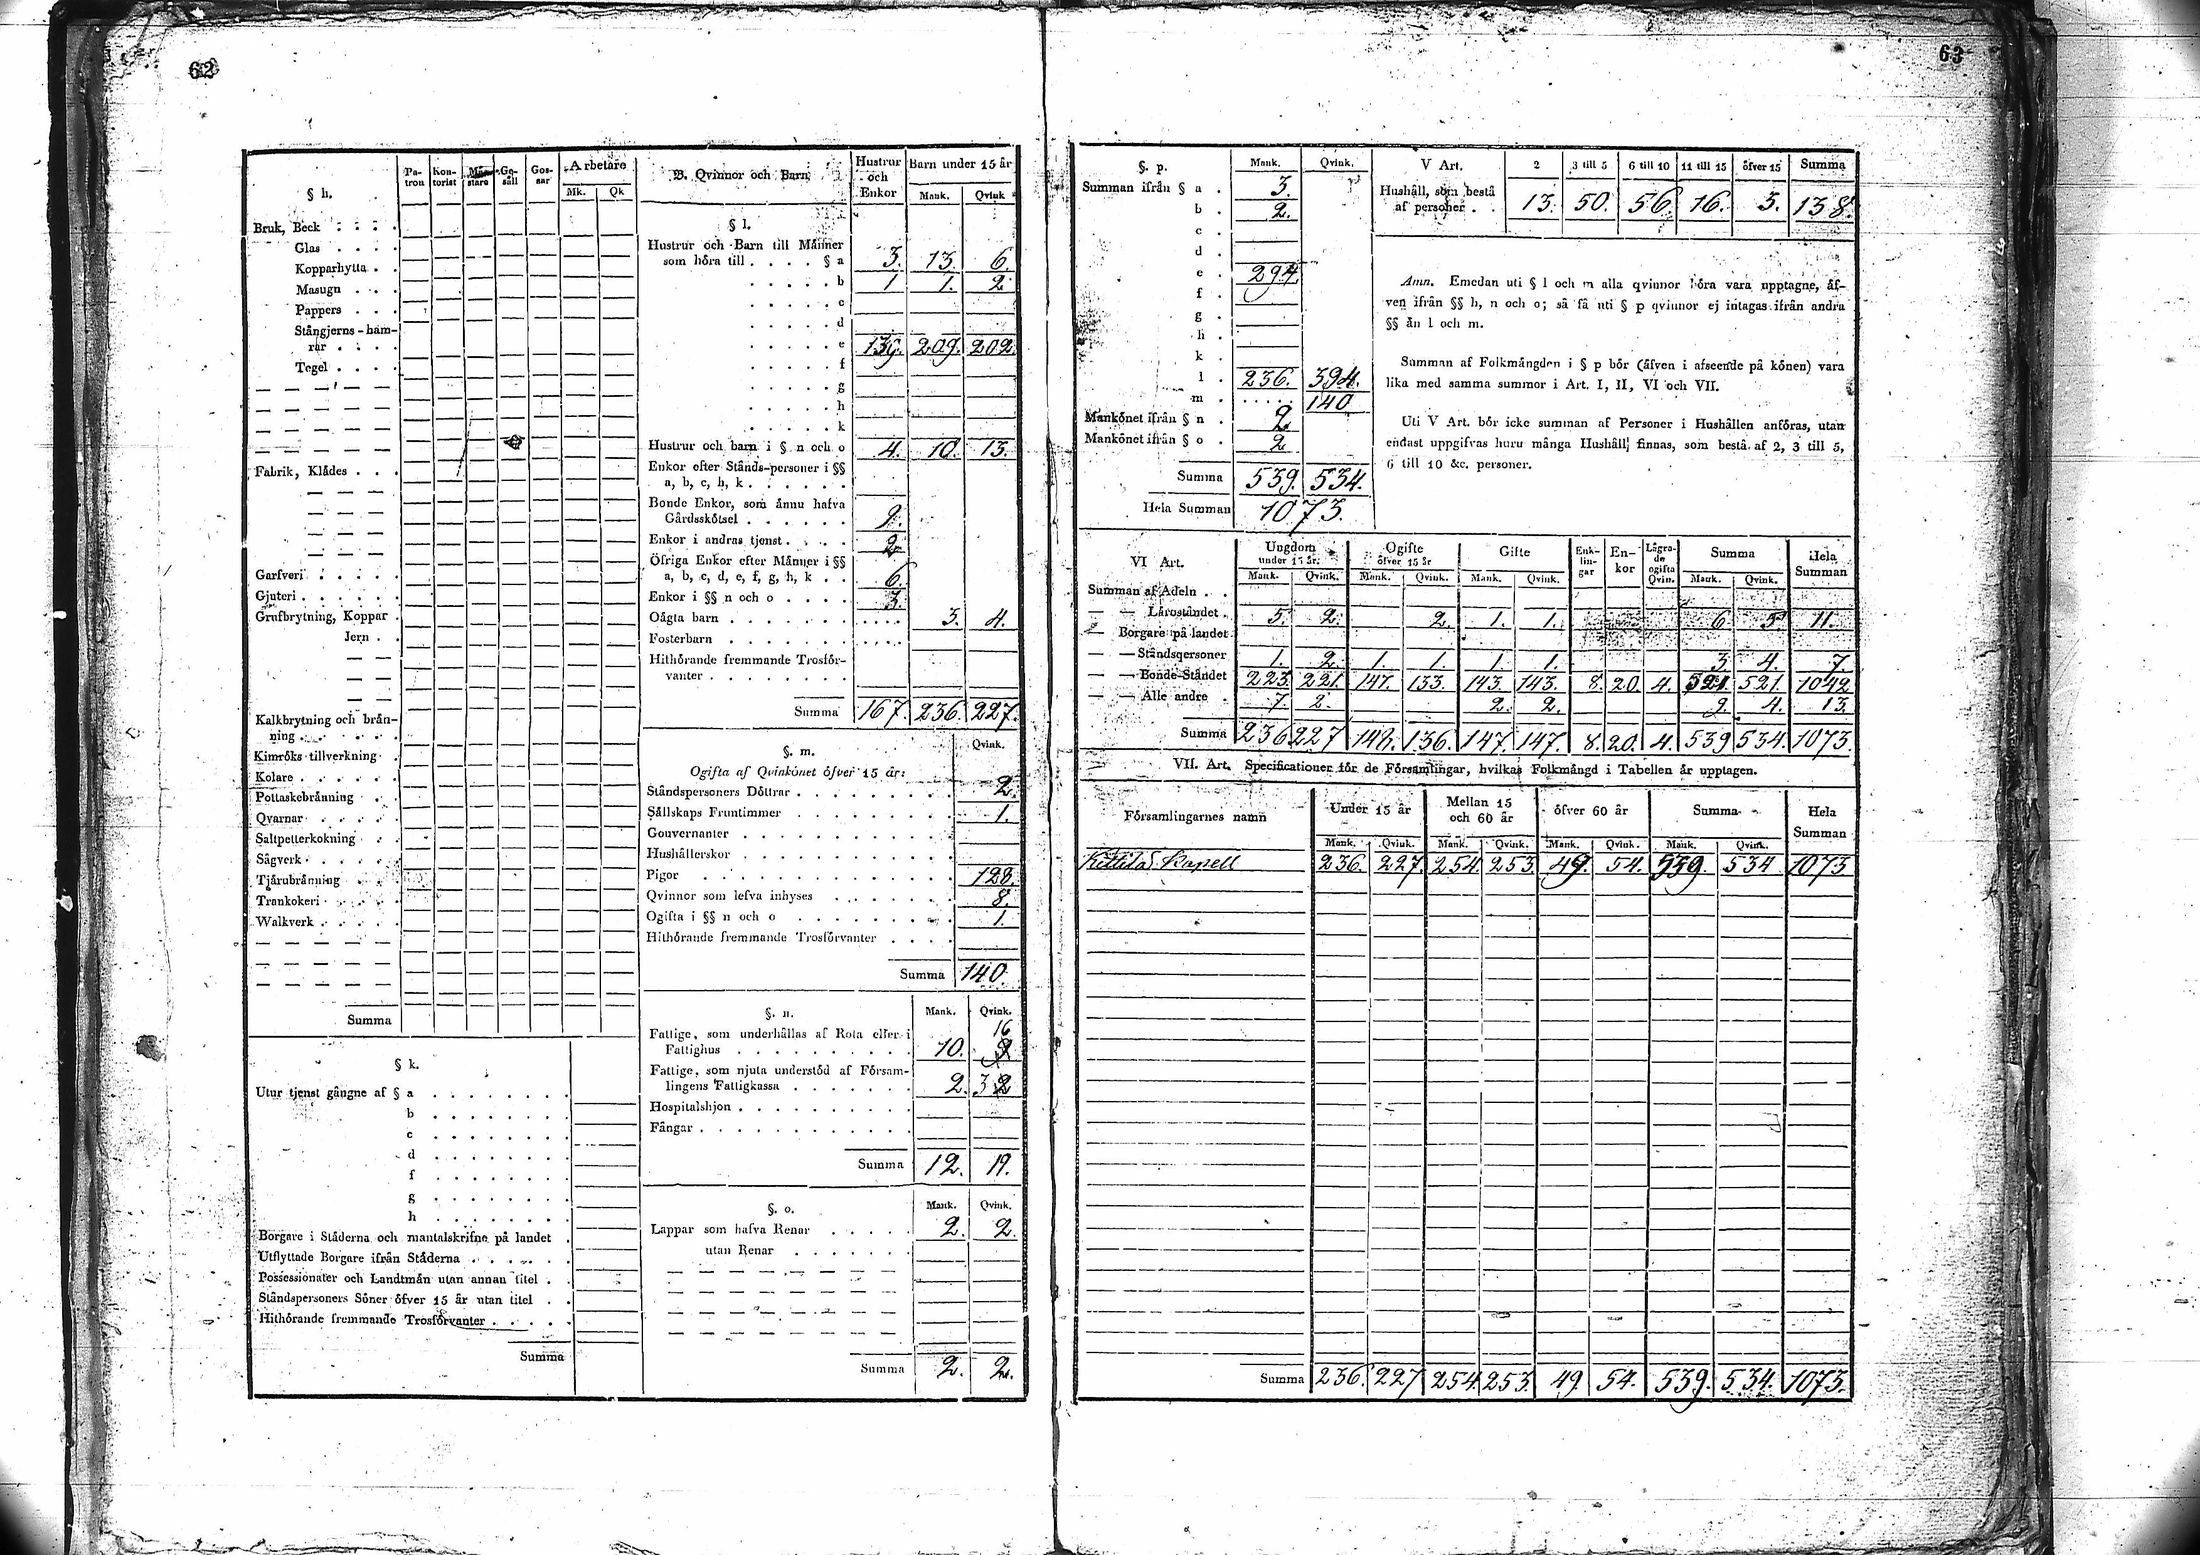 62
§ h.
Pa-tron Kon-torist Mä-stare Ge-säll Gos-sar Arbetare Mk. Qk
Bruk, Beck . . . .
Glas . . . .
Kopparhytta . .
Masugn . . .
Pappers . . .
Stångjerns-ham-
rar . . . .
Tegel . . . .
Fabrik, Klådes . . .
Garfveri . . . . .
Gjuteri . . . . .
Grufbrytning, Koppar .
Jern . .
Kalkbrytning och brån-
ning . . . . .
Kimröks tillverkning .
Kolare . . . . .
Pottaskebrånning . .
Qvarnar . . . . .
Saltpetterkokning . .
Sågverk . . . . .
Tjårubrånning . . .
Trankokeri . . . .
Walkverk . . . . .
Summa
§ k.
Utur tjenst gångne af § a . . . . . . . .
b . . . . . . . .
c . . . . . . . .
d . . . . . . . .
f . . . . . . . .
g . . . . . . . .
h . . . . . . . .
Borgare i Ståderna och mantalskrifne på landet .
Utflyttade Borgare ifrån Ståderna . . . . . .
Possessionater och Landtmån utan annan titel . .
Ståndspersoners Söner öfver 15 år utan titel . .
Hithörande fremmande Trosförvanter . . . . .
Summa
B. Qvinnor och Barn Hustrur och Enkor Barn under 15 år Mank. Qvink
§ l.
Hustrur och Barn till Månner
som höra till . . . . § a 3. 13. 6.
. . . . . b 1 1. 2
. . . . . c
. . . . . d
. . . . . e 139. 209. 202.
. . . . . f
. . . . . g
. . . . . h
. . . . . k
Hustrur och barn i § n och o 4. 10. 13.
Enkor efter Stånds-personer i §§
a, b, c, h, k . . . . . .
Bonde Enkor, som ånnu hafva
Gårdsskötsel . . . . . . 9.
Enkor i andras tjenst . . . . 2
Öfriga Enkor efter Månner i §§
a, b, c, d, e, f, g, h, k . . 6.
Enkor i §§ n och o . . . . 3.
Oågta barn . . . . . . . . . . . 3. 4.
Fosterbarn . . . . . . . . . . .
Hithörande fremmande Trosför-
vanter . . . . . . . .
Summa 167. 236. 227.
§. m. Qvink.
Ogifta af Qvinkönet öfver 15 år:
Ståndspersoners Döttrar . . . . . . . . . 2.
Sållskaps Fruntimmer . . . . . . . . . 1.
Gouvernanter . . . . . . . . . . .
Hushållerskor . . . . . . . . . . .
Pigor . . . . . . . . . . . . 128.
Qvinnor som lefva inhyses . . . . . . . 8.
Ogifta i §§ n och o . . . . . . . . . 1.
Hithörande fremmande Trosförvanter . . . .
Summa 140.
§. n. Mank. Qvink.
16
Fattige, som underhållas af Rota eller i
Fattighus . . . . . . . . . . 10.
Fattige, som njuta understöd af Försam-
lingens Fattigkassa . . . . . . . 2. 3
Hospitalshjon . . . . . . . . . .
Fångar . . . . . . . . . . . .
Summa 12. 19.
§. o. Mank. Qvink.
Lappar som hafva Renar . . . . . 2. 2.
utan Renar . . . . . . .
Summa 2. 2.
63
§. p. Mank. Qvink.
Summan ifrån § a . 3.
b . 2.
c .
d .
e . 294.
f .
g .
h .
k .
l . 236. 394.
m . . . . . . 140
Mankönet ifrån § n . 2
Mankönet ifrån § o . 2
Summa 539. 534.
Hela Summan 1073.
V Art. 2 3 till 5 6 till 10 11 till 15 öfver 15 Summa
Hushåll, som bestå
af personer . . 13. 50. 56. 16. 3. 138.
Anm. Emedan uti § l och m alla qvinnor böra vara upptagne, åf-
ven ifrån §§ h, n och o; så få uti § p qvinnor ej intagas ifrån andra
§§ ån l och m.
Summan af Folkmångden i § p bör (åfven i afseende på könen) vara
lika med samma summor i Art. I, II, VI och VII.
Uti V Art. bör icke summan af Personer i Hushållen anföras, utan
endast uppgifvas huru många Hushåll finnas, som bestå af 2, 3 till 5,
6 till 10 &c. personer.
VI Art. Ungdom under 15 år. Ogifte öfver 15 år Gifte Enk-lin-gar En-kor Lågra-de ogifta Qvin. Summa Hela Summan
Mank. Qvink. Mank. Qvink. Mank. Qvink. Mank. Qvink.
Summan af Adeln . .
— — Låroståndet . 5. 2. 2. 1. 1. 6. 5. 11.
— Borgare på landet
— — Ståndspersoner 1. 2. 1. 1. 1. 1. 3. 4. 7.
— — Bonde-Ståndet 223. 221. 147. 133. 143. 143. 8. 20. 4. 521. 521. 1042.
— — Alle andre . 7. 2. 2. 2. 9. 4. 13.
Summa 236 227 148. 136. 147. 147. 8. 20. 4. 539 534. 1073.
VII. Art. Specificationer för de Församlingar, hvilkas Folkmångd i Tabellen år upptagen.
Församlingarnes namn Under 15 år Mellan 15 och 60 år öfver 60 år Summa Hela Summan
Mank. Qvink. Mank. Qvink. Mank. Qvink. Mank. Qvink.
Kittilä Kapell 236. 227. 254. 253. 49. 54. 539. 534 1073
Summa 236. 227 254. 253. 49. 54. 539. 534. 1073.